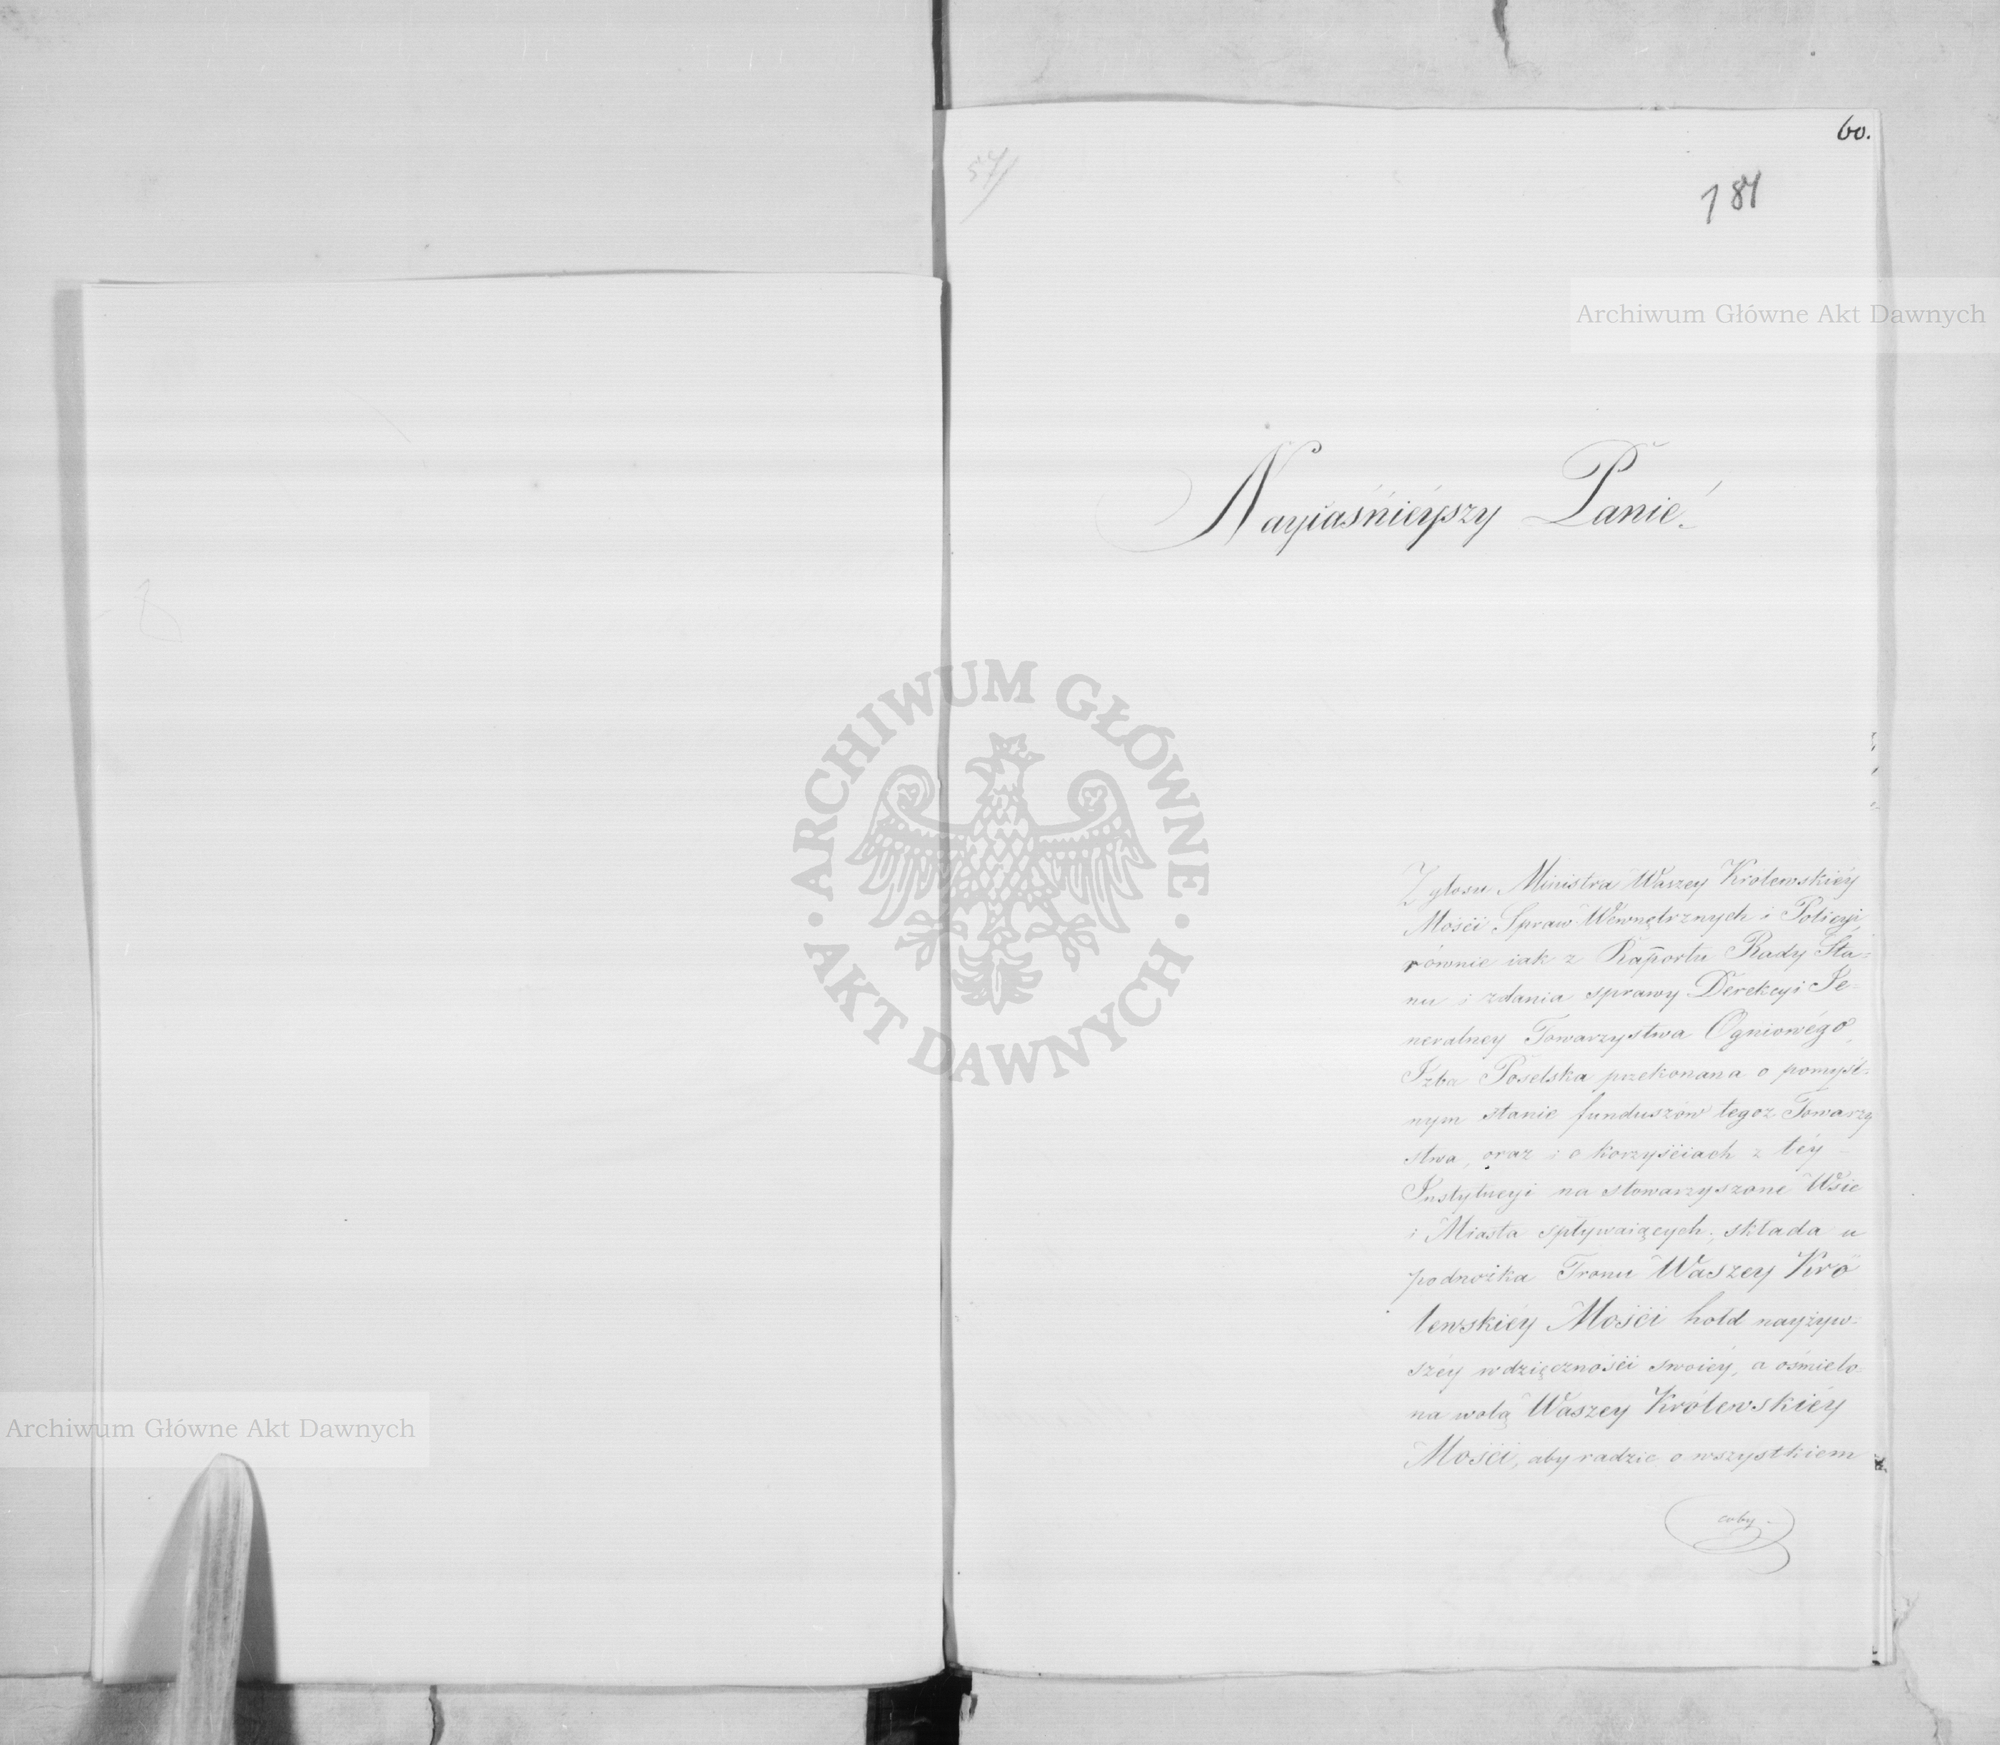 60.
57
181
Archiwum Główne Akt Dawnych
Nayiaśnieyszy Panie.
Z głosu Ministra Waszey Krolewskiéy
Mości Spraw Wewnętrznych i Policyi
równie iak z Raportu Rady Sta=
nu i zdania sprawy Derekcyi Je=
neralney Towarzystwa Ogniowégo,
Izba Poselska przekonana o pomyśl=
nym stanie funduszów tegoż Towarzy
stwa, oraz i o korzyściach z téy
Instytucyi na stowarzyszone Wsie
i Miasta spływaiących, składa u
podnożka Tronu Waszey Kró
lewskiéy Mości hołd nayżyw=
széy wdzięczności swoiéy, a ośmielo
na wolą Waszéy Królewskiéy
Mości, aby radzic o wszystkiem
coby
ARCHIWUM GŁÓWNE
AKT DAWNYCH
Archiwum Główne Akt Dawnych